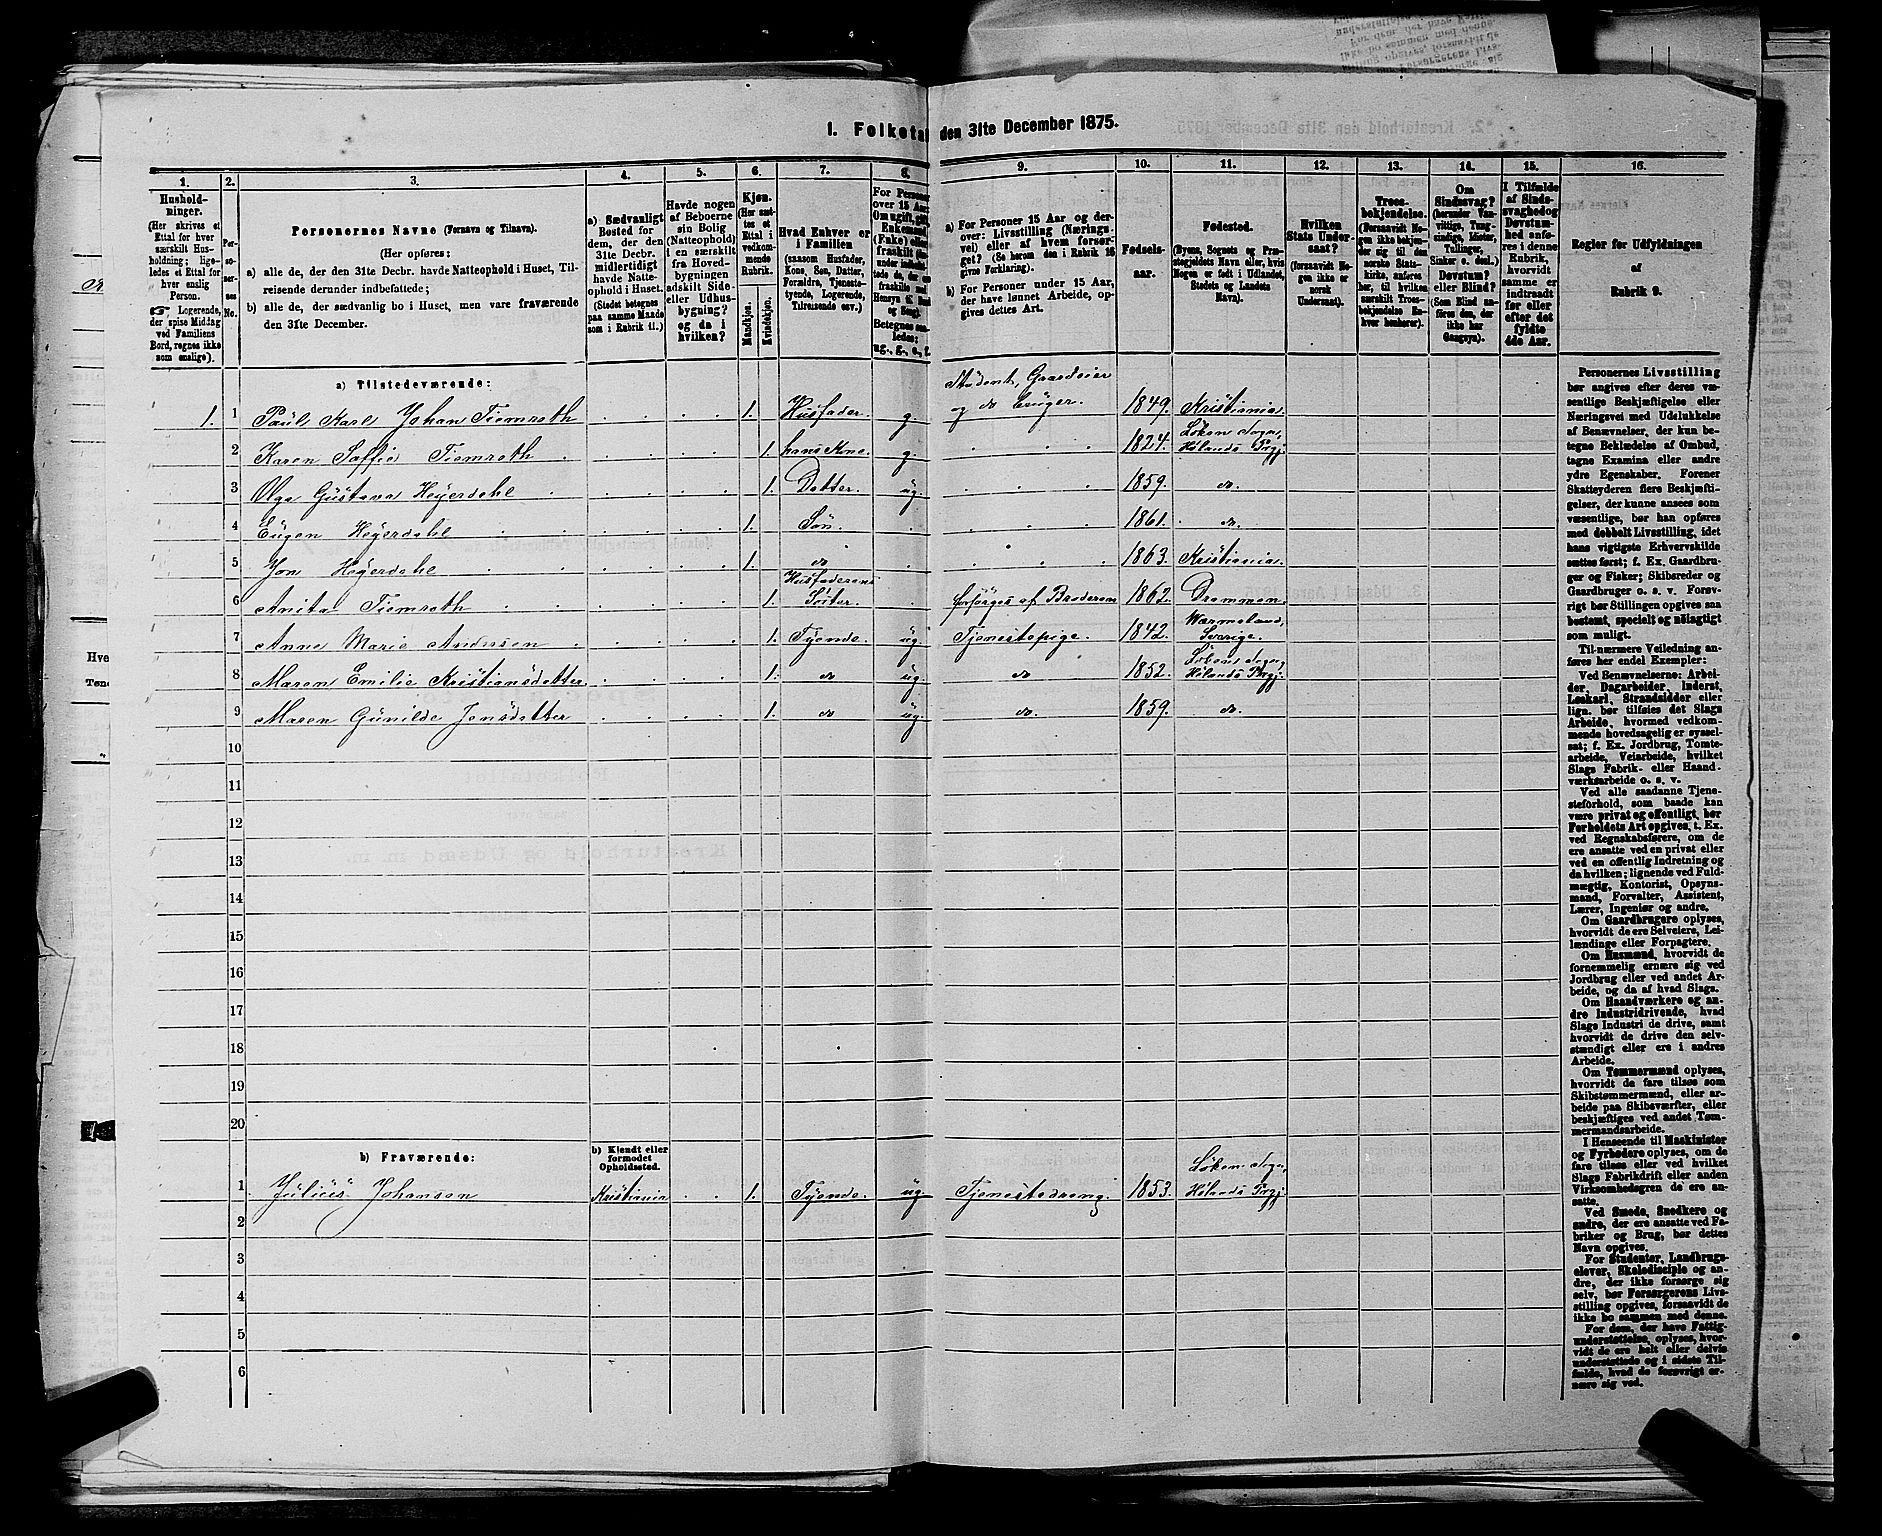 I. Folketæ
den 31te December 1875.
1.
2.
3.
4.
5.
6.
7.
8.
9.
10.
11.
12.
13.
14.
15.
16.
Hushold-
ninger.
(Her skrives et
Ettal for hver
særskilt Hus-
holdning; lige-
ledes et Ettal for
hver enslig
Person.
☞ Logerende,
der spise Middag
ved Familiens
Bord, regnes ikke
som enslige).
Per-
so-
ner-
nes
No.
Personernes Navne (Fornavn og Tilnavn).
(Her opføres:
a) alle de, der den 31te Decbr. havde Natteophold i Huset, Til-
reisende derunder indbefattede;
b) alle de, der sædvanlig bo i Huset, men vare fraværende
den 31te December.
a) Sædvanligt
Bosted for
dem, der den
31te Decbr.
midlertidigt
havde Natte-
ophold i Huset.
(Stedet betegnes
paa samme Maade
som i Rubrik 11.)
Havde nogen
af Beboerne
sin Bolig
(Natteophold)
i en særskilt
fra Hoved-
bygningen
adskilt Side-
eller Udhus-
bygning?
og da i
hvilken?
Kjøn.
(Her sæt-
tes et
Ettal i
vedkom-
mende
Rubrik.
Mandkjøn.
Kvindekjøn.
Hvad Enhver er
i Familien
(saasom Husfader,
Kone, Søn, Datter,
Forældre, Tjeneste-
tyende, Logerende,
Tilreisende osv.)
For Personer
over 15 Aar:
Om ugift, gift,
Enkemand
(Enke) eller
fraskilt
Betegnes saa-
ledes:
ug., g., e., f.
a) For Personer 15 Aar og der-
over: Livsstilling (Nærings-
vei) eller af hvem forsør-
get? (Se herom den i Rubrik 16
givne Forklaring).
b) For Personer under 15 Aar,
der have lønnet Arbeide, op-
gives dettes Art.
Fødsels-
aar.
Fødested.
(Byens, Sognets og Præ-
stegjeldets Navn eller, hvis
Nogen er født i Udlandet,
Stedets og Landets
Navn).
Hvilken
Stats Under-
saat?
(forsaavidt No-
gen ikke er
norsk
Undersaat).
Troes-
bekjendelse.
(Forsaavidt No-
gen ikke bekjen-
der sig til den
norske Stats-
kirke, anføres
her, til hvilken
særskilt Troes-
bekjendelse En-
hver henhører).
Om
Sindssvag?
(herunder Van-
vittige, Tung-
sindige, Idioter,
Tullinger,
Sinker o. desl.)
Døvstum?
eller Blind?
(Som Blind an-
føres den, der
ikke har
Gangsyn).
I Tilfælde
af Sinds-
svaghed og
Døvstum-
hed anfø-
res i denne
Rubrik,
hvorvidt
samme er
indtraadt
før eller
efter det
fyldte
4de Aar.
Regler for Udfyldningen
af
Rubrik 9.
a) Tilstedeværende:
Student, Gaardeier
1. 1 Paul Karl Johan Tiemroth 1. Husfader. g. og do bruger. 1849. Kristiania.
2 Karen Soffie Tiemroth 1. hans Kone. g. 1824. Løken Sogn, Hølands Prgj.
3 Olga Gustava Heyerdahl 1. Datter. ug. 1859. do.
4 Eugen Heyerdahl 1. Søn. 1861. do.
5 Jon Heyerdahl 1. do 1863. Kristiania.
6 Anita Tiemroth 1. Husfaderens Søster. forsørges af Broderen 1862. Drammen.
7 Anne Marie Andersen 1. Tyende. ug. Tjenestepige. 1842. Wærmeland, Sverige.
8 Maren Emilie Kristiansdatter 1. do ug. do 1852. Løkens Sogn, Hølands Prgj.
9 Maren Gunilde Jensdatter 1. do ug. do. 1859. do.
10
11
12
13
14
15
16
17
18
19
20
b) Fraværende:
b) Kjendt eller
formodet
Opholdssted.
1 Julius Johansen Kristiania 1. Tyende. ug. Tjenestedreng. 1853. Løken Sogn, Hølands Prgj.
2
3
4
5
6
Personernes Livsstilling
bør angives efter deres væ-
sentlige Beskjæftigelse eller
Næringsvei med Udelukkelse
af Benævnelser, der kun be-
tegne Beklædelse af Ombud,
tagne Examina eller andre
ydre Egenskaber. Forener
Skatteyderen flere Beskjæfti-
gelser, der kunne ansees som
væsentlige, bør han opføres
med dobbelt Livsstilling, idet
hans vigtigste Erhvervskilde
sættes først; f. Ex. Gaardbru-
ger og Fisker; Skibsreder og
Gaardbruger o. s. v. Forøv-
rigt bør Stillingen opgives saa
bestemt, specielt og nøiagtigt
som muligt.
Til nærmere Veiledning an-
føres her endel Exempler:
Ved Benævnelserne: Arbei-
der, Dagarbeider, Inderst,
Løskarl, Strandsidder eller
lign. bør tilføies det Slags
Arbeide, hvormed vedkom-
mende hovedsagelig er syssel-
sat; f. Ex. Jordbrug, Tomte-
arbeide, Veiarbeide, hvilket
Slags Fabrik- eller Haand-
værksarbeide o. s. v.
Ved alle saadanne Tjene-
steforhold, som baade kan
være privat og offentligt, bør
Forholdets Art opgives, t. Ex.
ved Regnskabsførere, om de
ere ansatte ved en privat eller
ved en offentlig Indretning og
da hvilken; lignende ved Fuld-
mægtig, Kontorist, Opsyns-
mand, Forvalter, Assistent,
Lærer, Ingeniør og andre.
Om Gaardbrugere oplyses,
hvorvidt de ere Selveiere, Lei-
lændinge eller Forpagtere.
Om Husmænd, hvorvidt de
fornemmelig ernære sig ved
Jordbrug eller ved andet Ar-
beide, og da af hvad Slags.
Om Haandværkere og an-
dre Industridrivende, hvad
Slags Industri de drive, samt
hvorvidt de drive den selv-
stændigt eller ere i andres
Arbeide.
Om Tømmermænd oplyses,
hvorvidt de fare tilsøs som
Skibstømmermænd, eller ar-
beide paa Skibsværfter, eller
beskjæftiges ved andet Tøm-
mermandsarbeide.
I Henseende til Maskinister
og Fyrbødere oplyses, om de
fare tilsøs eller ved hvilket
Slags Fabrikdrift eller anden
Virksomhedsgren de ere an-
satte.
Ved Smede, Snedkere og
andre, der ere ansatte ved Fa-
briker og Brug, bør dettes
Navn opgives.
For Studenter, Landbrugs-
elever, Skoledisciple og an-
dre, der ikke forsørge sig
selv, bør Forsørgerens Livs-
stilling opgives, forsaavidt de
ikke bo sammen med denne.
For dem, der have Fattig-
understøttelse, oplyses, hvor-
vidt de ere helt eller delvis
understøttede og i sidste Til-
fælde, hvad de forøvrigt er-
nære sig ved.